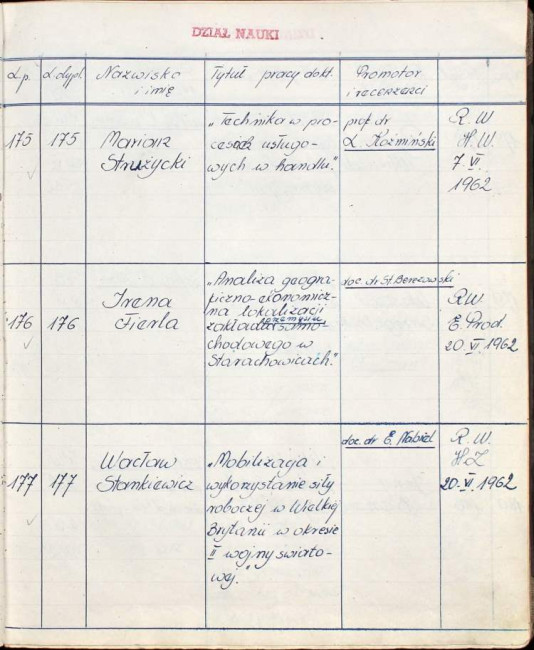 DZIAŁ NAUKI
L.p. L. dypl. Nazwisko i imię Tytuł pracy dokt. Promotor i recenzenci
175 175 Marian Strużycki
„Technika w pro-
cesach usługo-
wych w handlu."
prof. dr
L. Koźmiński
R. W
H.W.
7. VI
1962
176 176 Irena Fierla
„Analiza geogra-
ficzno-ekonomicz-
na lokalizacji
przemysłu
zakładu samo-
chodowego w
Starachowicach."
doc. dr St. Berezowski
R.W.
E. Prod.
20. VI 1962
177 177 Wacław Stankiewicz
„Mobilizacja i
wykorzystanie siły
roboczej w Wielkiej
Brytanii w okresie
II wojny świato-
wej."
doc. dr E.
R. W.
H.Z
20. VI 1962